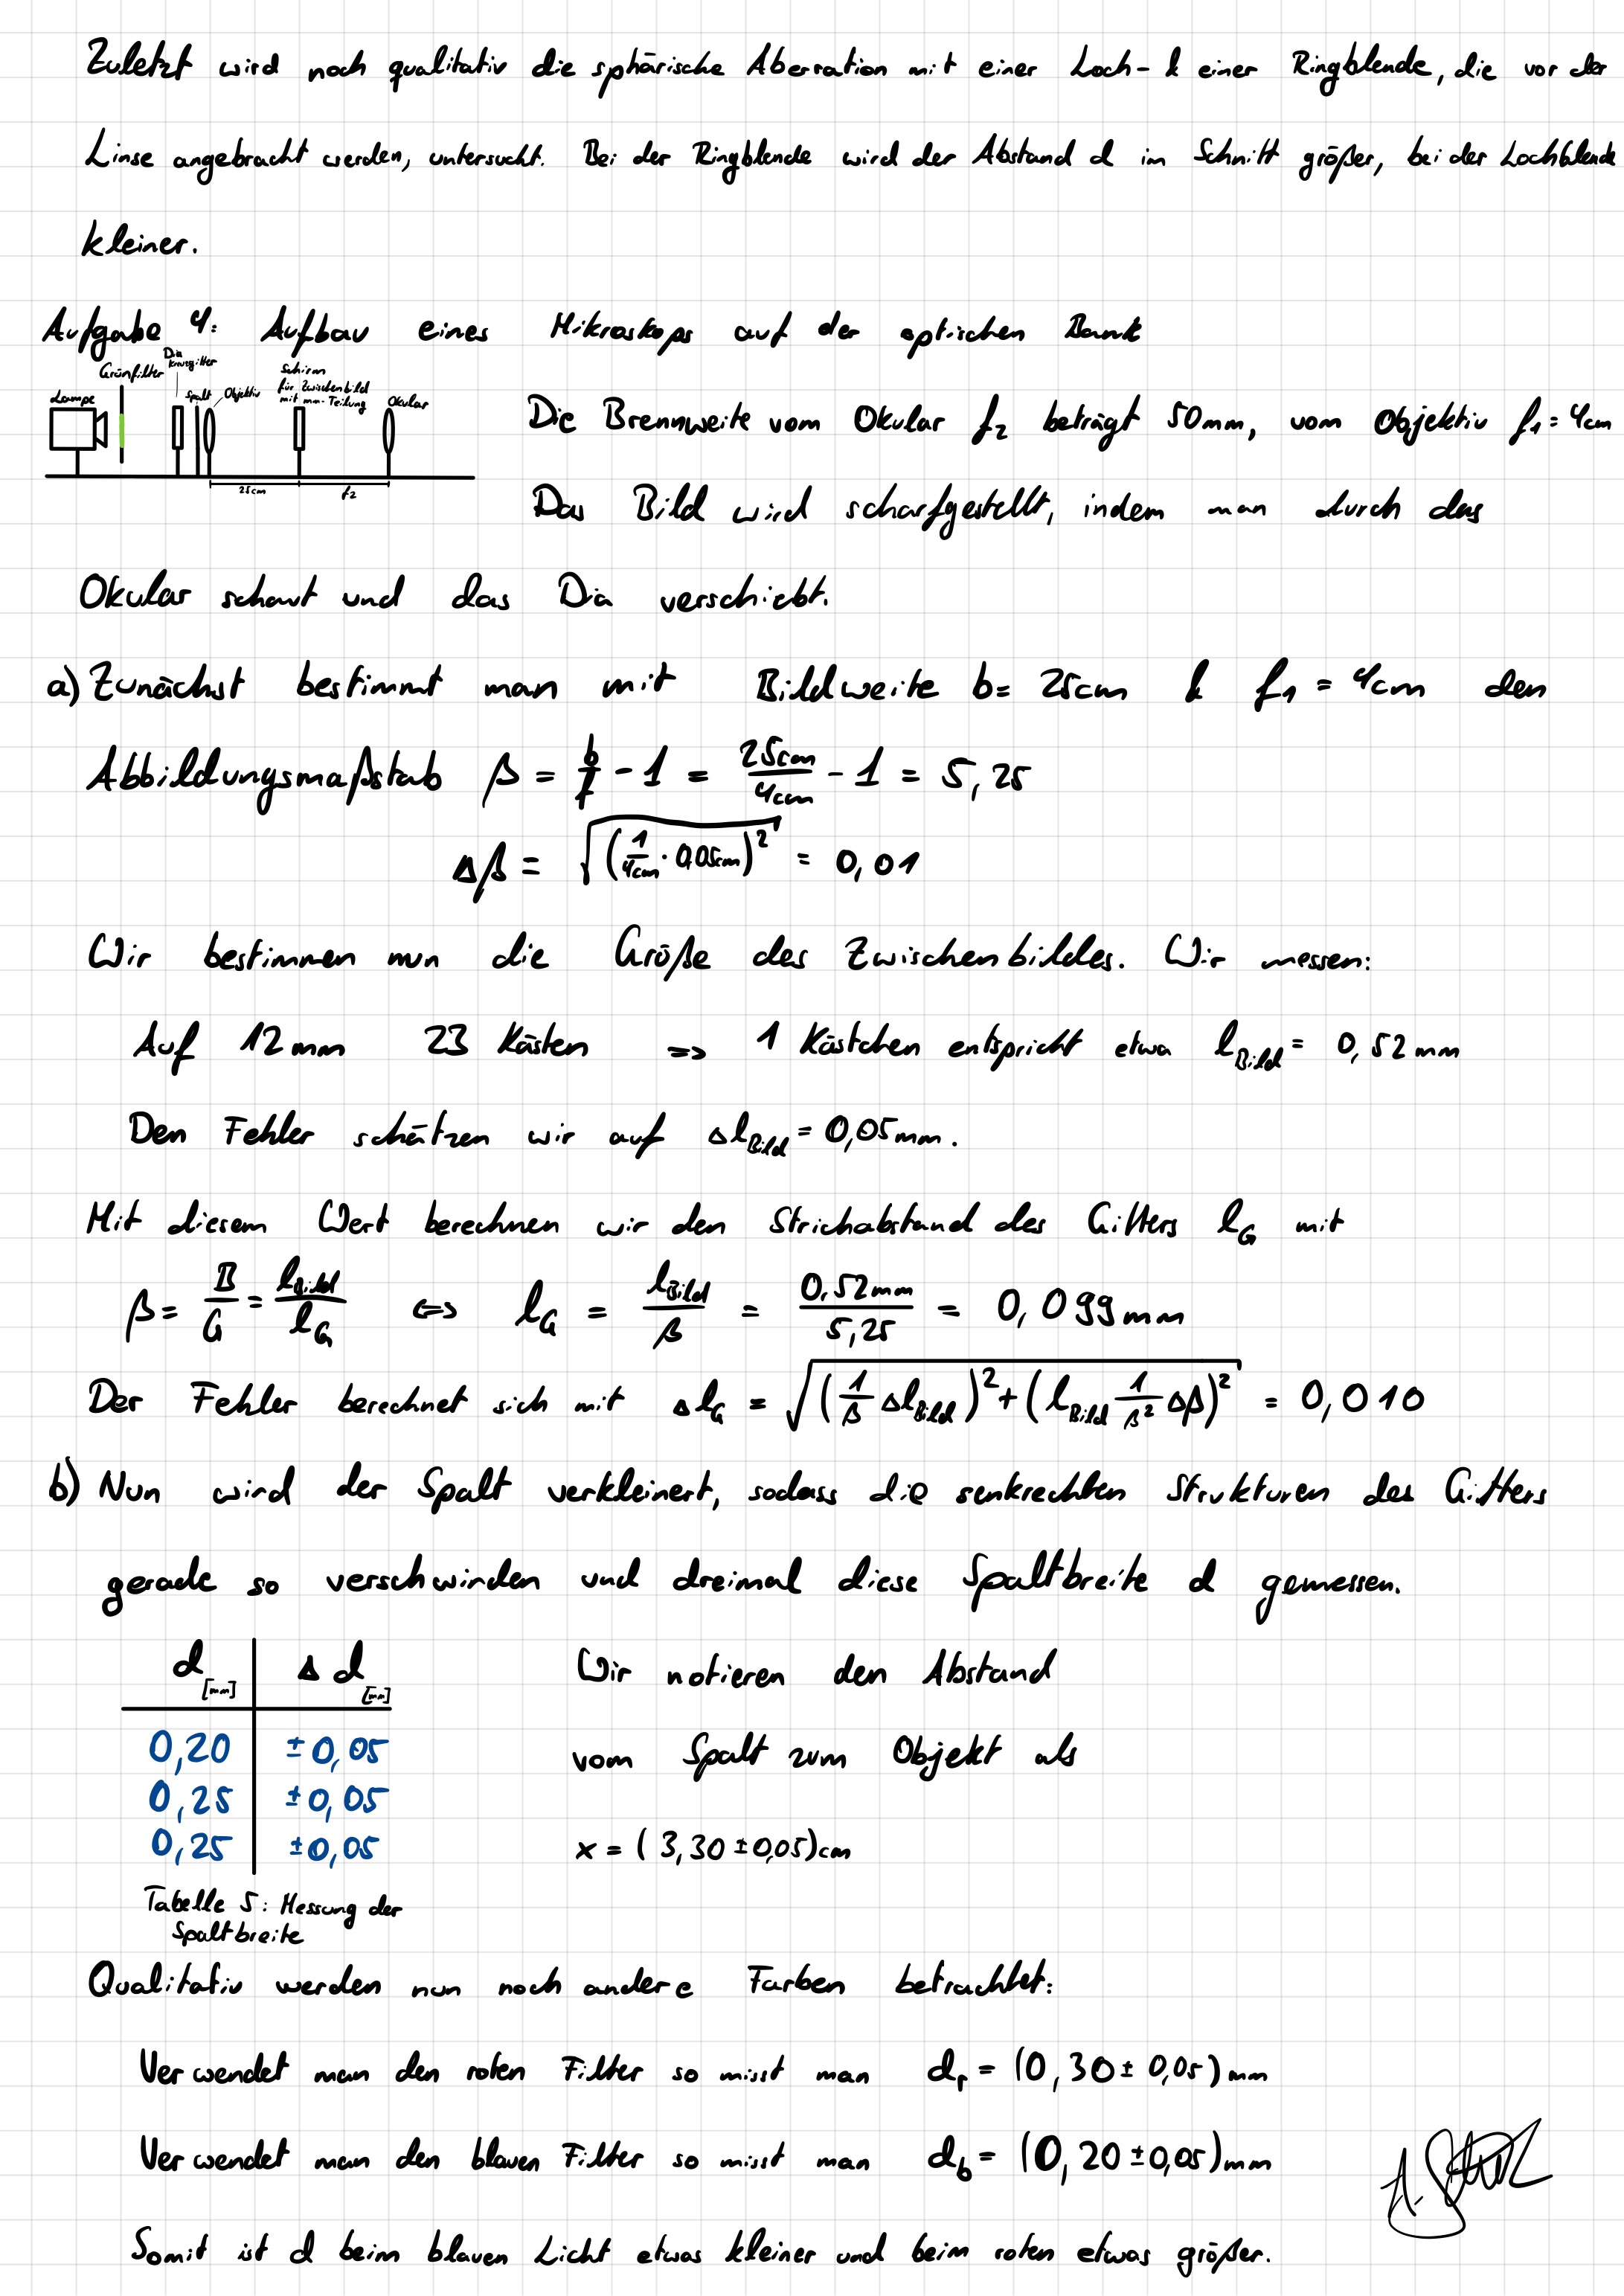 Zuletzt wird noch qualitativ die sphärische Aberration mit einer Loch- & einer Ringblende, die vor der
Linse angebracht werden, untersucht. Bei der Ringblende wird der Abstand d im Schnitt größer, bei der Lochblende
kleiner.
Aufgabe 4: Aufbau eines Mikroskops auf der optischen Bank
Lampe
Grünfilter
Dia
Kreuzgitter
Spalt
Objektiv
Schirm
für Zwischenbild
mit mm-Teilung
Okular
25cm
f₂
Die Brennweite vom Okular f₂ beträgt 50mm, vom Objektiv f₁ = 4cm
Das Bild wird scharfgestellt, indem man durch das
Okular schaut und das Dia verschiebt.
a) Zunächst bestimmt man mit Bildweite b = 25cm & f₁ = 4cm den
Abbildungsmaßstab β = b/f - 1 = 25cm/4cm - 1 = 5,25
Δβ = √((1/4cm · 0,05cm)²) = 0,01
Wir bestimmen nun die Größe des Zwischenbildes. Wir messen:
Auf 12mm 23 Kästen => 1 Kästchen entspricht etwa l_Bild = 0,52mm
Den Fehler schätzen wir auf Δl_Bild = 0,05mm.
Mit diesem Wert berechnen wir den Strichabstand des Gitters l_G mit
β = B/G = l_Bild/l_G <=> l_G = l_Bild/β = 0,52mm/5,25 = 0,099mm
Der Fehler berechnet sich mit Δl_G = √((1/β Δl_Bild)² + (l_Bild 1/β² Δβ)²) = 0,010
b) Nun wird der Spalt verkleinert, sodass die senkrechten Strukturen des Gitters
gerade so verschwinden und dreimal diese Spaltbreite d gemessen.
d [mm] | Δ d [mm]
0,20 | ±0,05
0,25 | ±0,05
0,25 | ±0,05
Tabelle 5: Messung der
Spaltbreite
Wir notieren den Abstand
vom Spalt zum Objekt als
x = (3,30 ± 0,05)cm
Qualitativ werden nun noch andere Farben betrachtet:
Verwendet man den roten Filter so misst man d_r = (0,30 ± 0,05)mm
Verwendet man den blauen Filter so misst man d_b = (0,20 ± 0,05)mm
Somit ist d beim blauen Licht etwas kleiner und beim roten etwas größer.